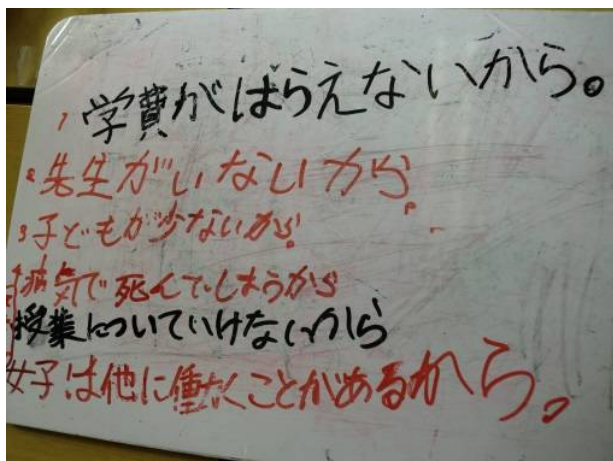 1 学費がはらえないから。
2 先生がいないから。
3 子どもが少ないから。
病気で死んでしまうから
授業についていけないから
女子は他に働くことがあるから。